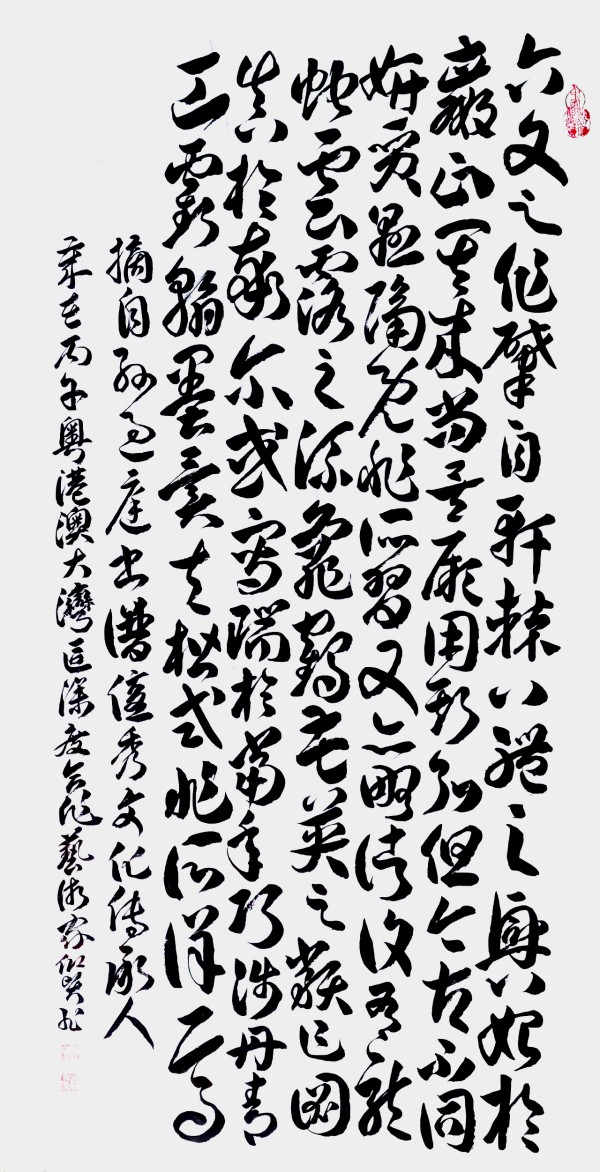 六文之作肇自軒轅八體之興始於
嬴正其來尚矣厥用斯弘但今古不同
妍質懸隔既非所習又亦略諸復有龍
蛇雲露之流龜鶴花英之類乍圖
真於率爾或寫瑞於當年巧涉丹青
工虧翰墨異夫楷式非所詳焉
摘自孫過庭書譜優秀文化傳承人
歲在丙午粵港澳大灣區深度合作藝術家